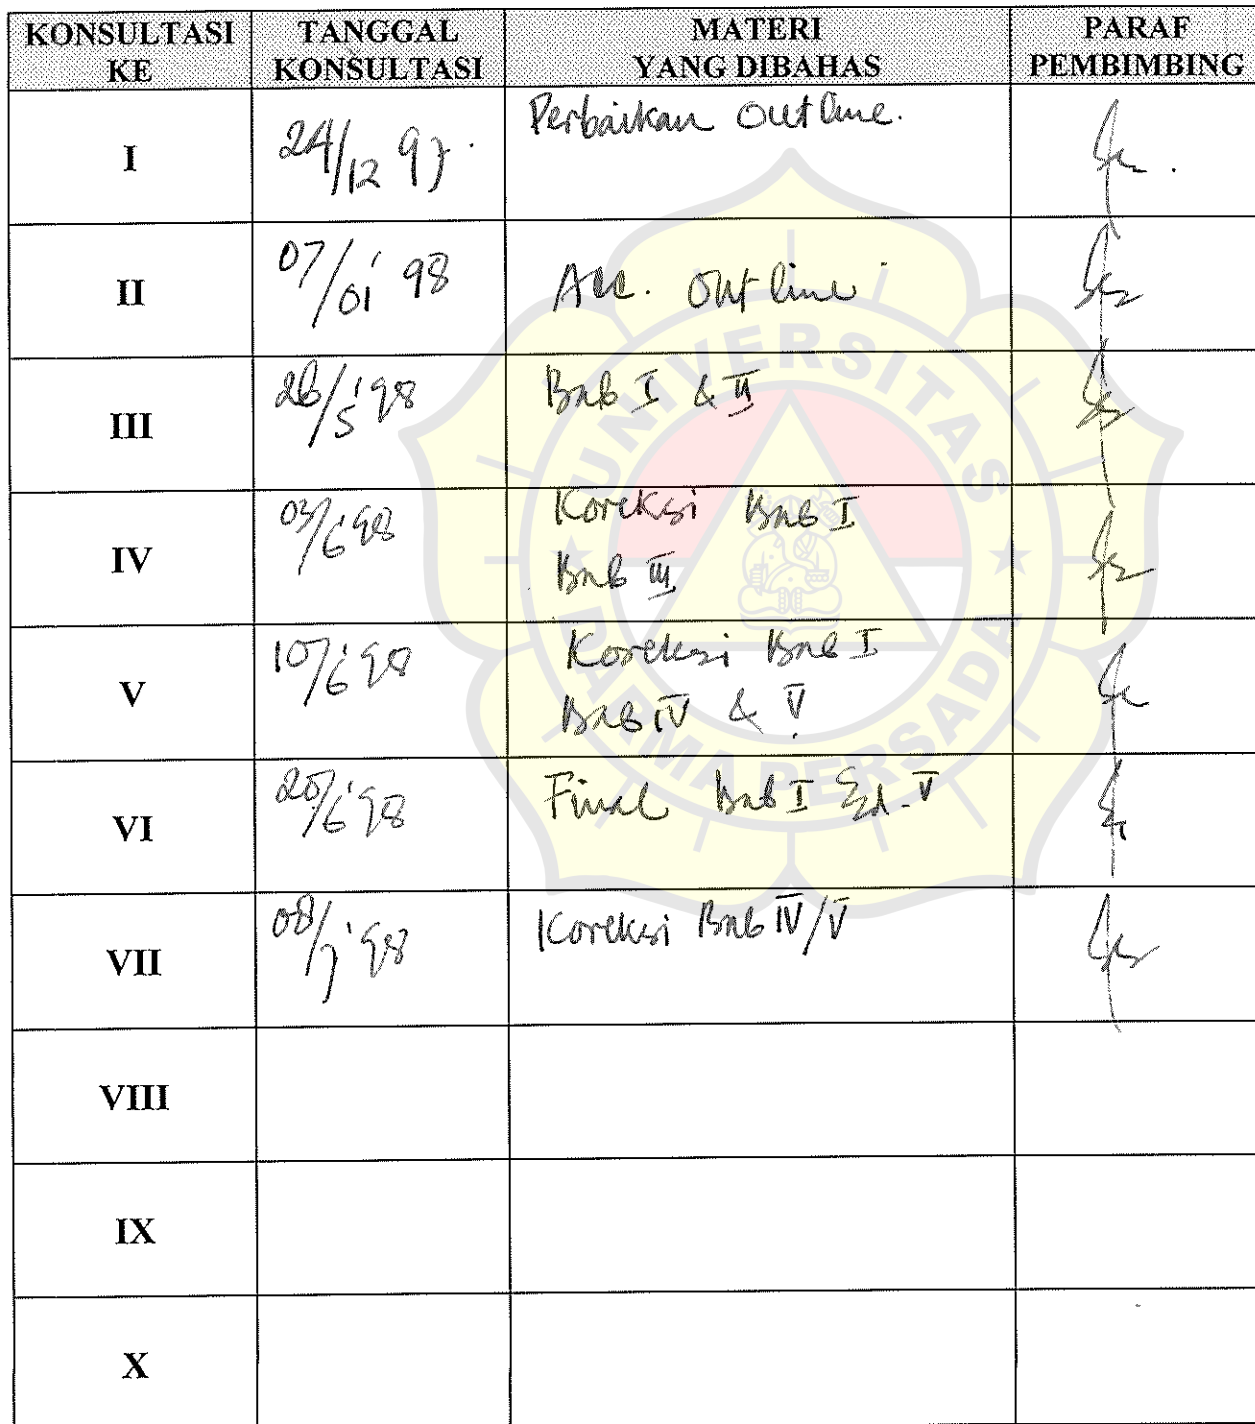 KONSULTASI KE
TANGGAL KONSULTASI
MATERI YANG DIBAHAS
PARAF PEMBIMBING
I
24/12 97.
Perbaikan Outline.
II
07/01 '98
Acc. Outline
III
26/5 '98
Bab I & II
IV
03/6 '98
Koreksi Bab I
Bab III
V
10/6 '98
Koreksi Bab I
Bab IV & V
VI
20/6 '98
Final Bab I Sd. V
VII
08/7 '98
Koreksi Bab IV/V
VIII
IX
X
UNIVERSITAS
DARMA PERSADA